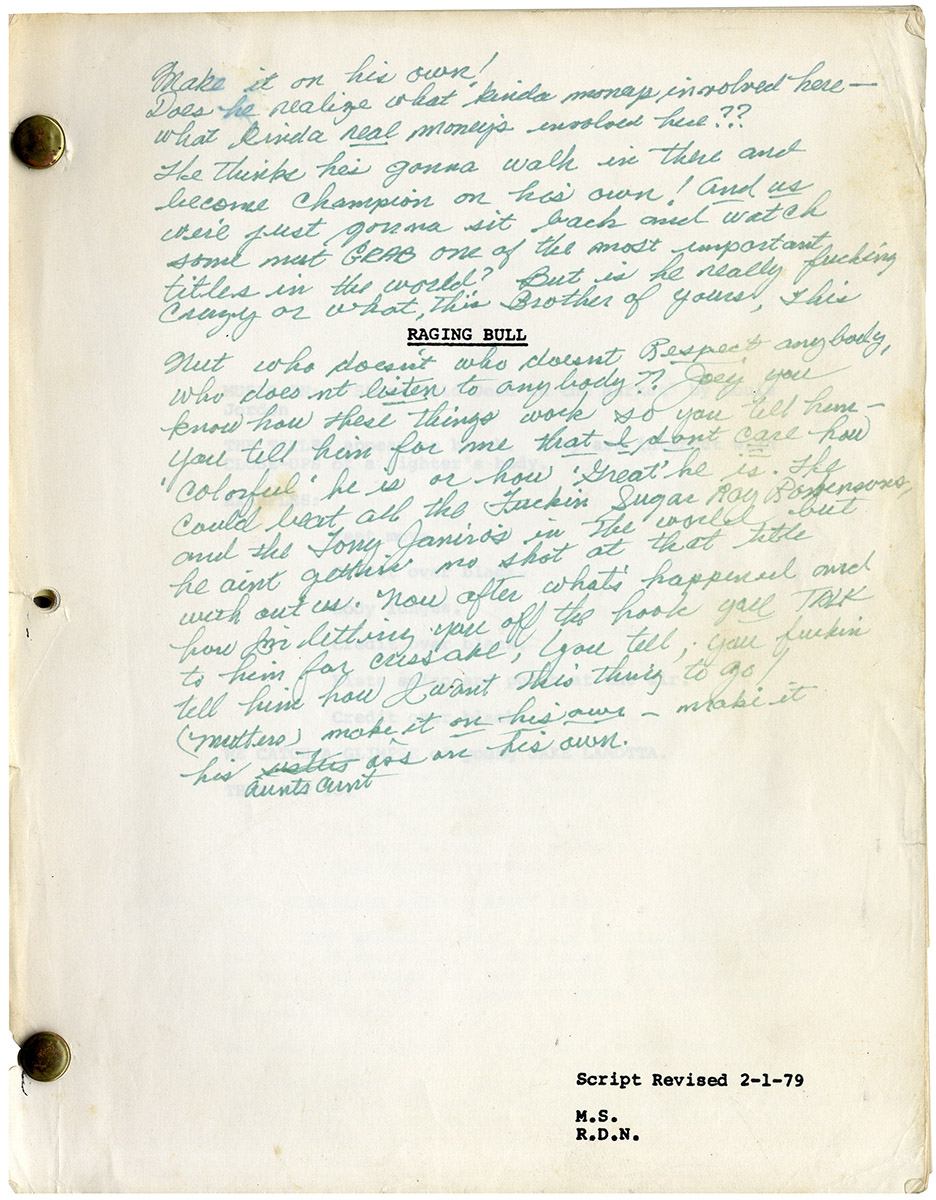 Make it on his own!
Does he realize what kinda moneys involved here —
what kinda real money's involved here??
He thinks he's gonna walk in there and
become Champion on his own! And us
we're just gonna sit back and watch
some nut GRAB one of the most important
titles in the world? But is he really fucking
Crazy or what, this Brother of yours, this
RAGING BULL
Nut who doesn't who doesnt Respect anybody,
who doesnt listen to anybody?! Joey you
know how these things work so you tell him —
you tell him for me that I dont care how
"colorful" he is or how 'Great' he is. He
could beat all the Fuckin Sugar Ray Robinsons,
and the Tony Janiro's in the world but
he aint gettin' no shot at that title
with out us. Now after what's happened and
how I'm letting you off the hook you TALK
to him for crissake, you tell, you fuckin
tell him how I want this thing to go!
(mutters) make it on his own — make it
his sister's ass on his own.
aunts cunt
Script Revised 2-1-79
M.S.
R.D.N.